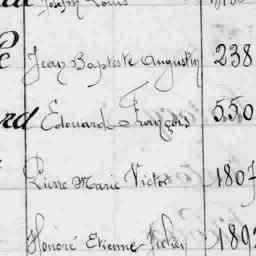 Joseph Louis
Jean Baptiste Augustin 238
rd Edouard François 550
Pierre Marie Victor 1807
Honoré Etienne 189